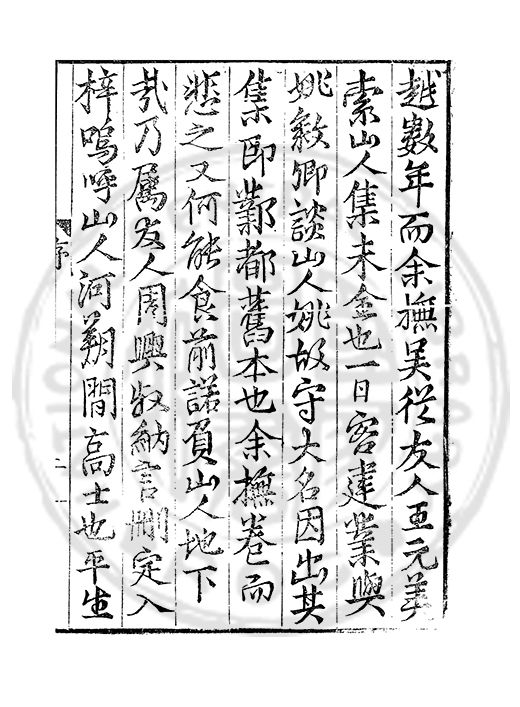 越數年而余撫吳從友人王元美
索山人集未全也一日客建業與
姚敘卿談山人姚故守大名因出其
集即鄴都舊本也余撫卷而
悲之又何能食前諾負山人地下
哉乃屬友人周興叔納言刪定入
梓嗚呼山人河朔間高士也平生
序